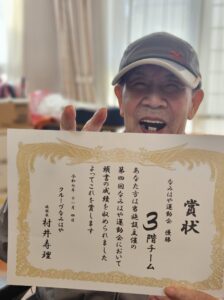 賞状
なみはや運動会 優勝
3階チーム
あなた方は当施設主催の
第四回なみはや運動会において
頭書の成績を収められました
よってこれを賞します
令和七年十一月四日
グループなみはや
施設長 村井寿理